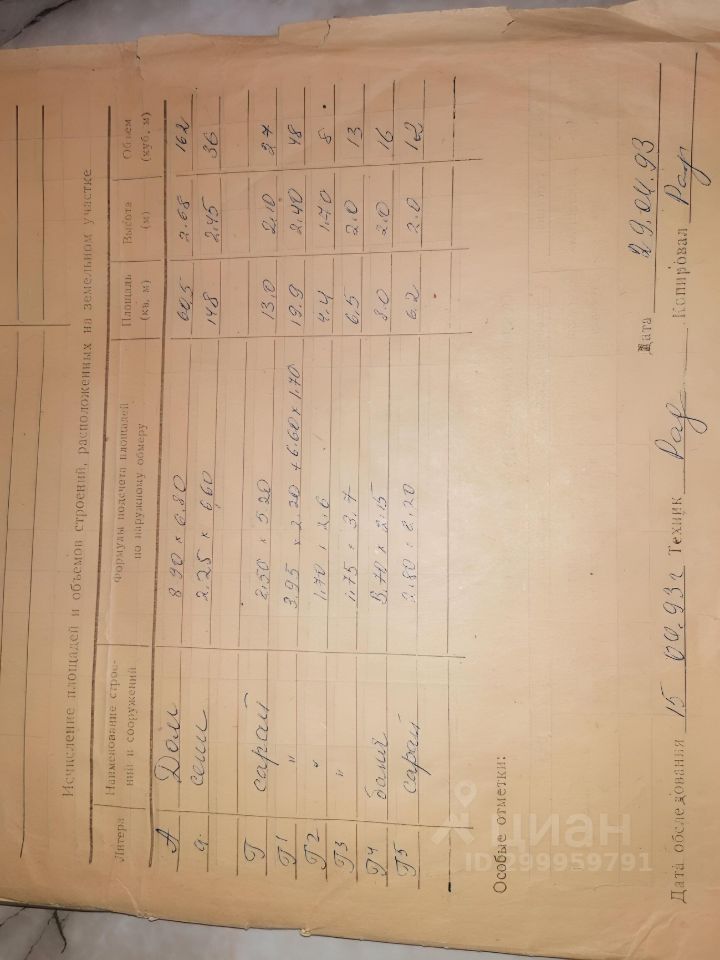 Исчисление площадей и объемов строений, расположенных на земельном участке
Литера Наименование строений и сооружений Формулы подсчета площадей по наружному обмеру Площадь (кв. м) Высота (м) Объем (куб. м)
А Дом 8.90 × 6.80 60,5 2.68 162
а. сени 2.25 × 6,60 14,8 2,45 36
Г сарай 2,50 × 5,20 13.0 2,10 27
Г1 " 3.95 × 2.20 + 6.60 × 1.70 19.9 2.40 48
Г2 " 1,70 × 2,6 4.4 1.70 8
Г3 " 1,75 × 3.7 6,5 2.0 13
Г4 баня 3,70 × 2.15 8.0 2.0 16
Г5 сарай 2.80 × 2.20 6.2 2.0 12
Особые отметки:
Дата 29.04.93
Дата обследования 15 93г Техник Копировал
циан
ID:299959791